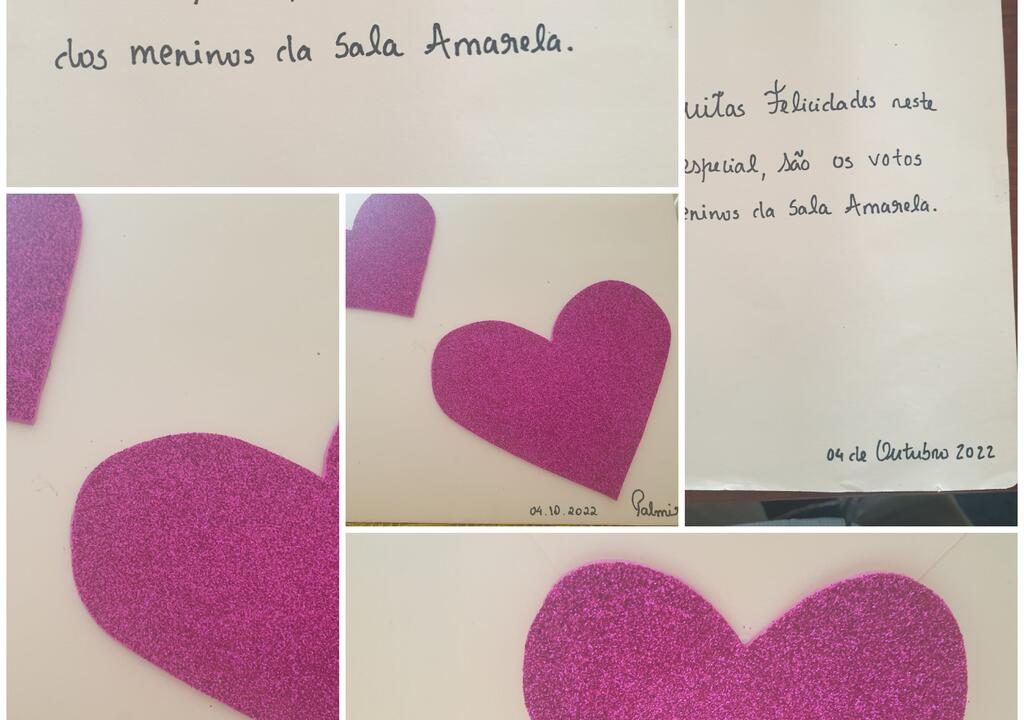 dos meninos da Sala Amarela.
uitas Felicidades neste
especial, são os votos
eninos da Sala Amarela.
04 de Outubro 2022
04.10.2022